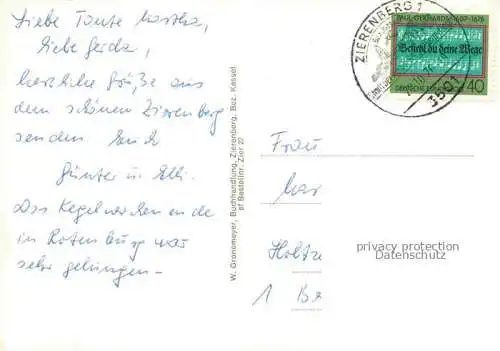 Liebe Tante Martha,
liebe Gerda,
herzliche Grüße aus
dem schönen Zierenberg
senden Euch
Günter u. Elli.
Das Kegelwochenende
in Rotenburg war
sehr gelungen –
W. Gronemeyer, Buchhandlung, Zierenberg, Bez. Kassel
Bestellnr. Zier 22
ZIERENBERG 1
3501
PAUL GERHARDT 1607-1676
Befiehl du deine Wege
DEUTSCHE BUNDESPOST 40
Frau
Holtze
1 Be
privacy protection
Datenschutz